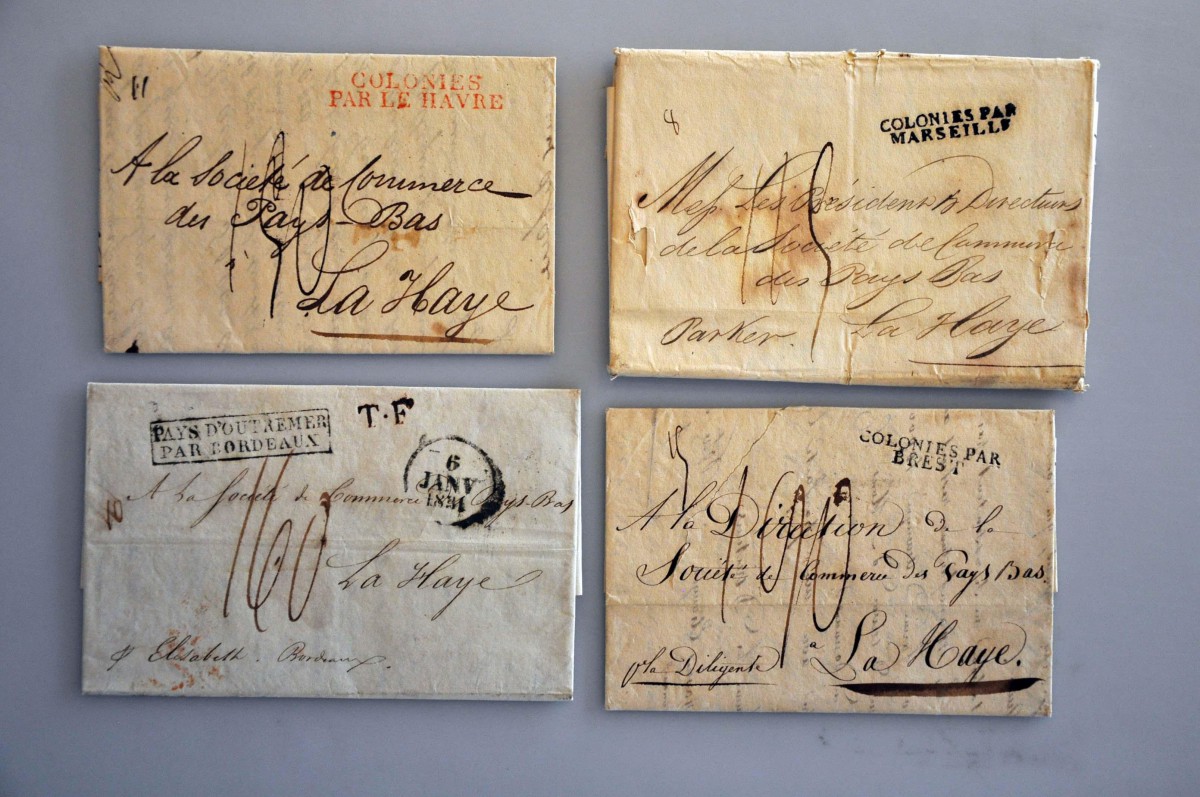 11
COLONIES
PAR LE HAVRE
A la Société de Commerce
des Pays-Bas
La Haye
8
COLONIES PAR
MARSEILLE
Mess. Les Président & Directeurs
de la Société de Commerce
des Pays Bas
Parker. La Haye
PAYS D'OUTREMER
PAR BORDEAUX
T·F
6
JANV
1831
A La Société de Commerce Pays-Bas
160
La Haye
p Elisabeth. Bordeaux.
COLONIES PAR
BREST
A la Diration de la
Société de Commerce des Pays Bas.
a La Haye.
p la Diligente